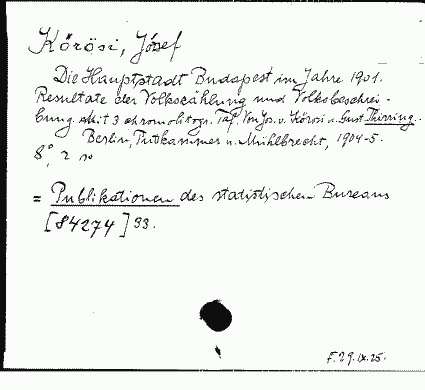 Kőrösi, József
Die Hauptstadt Budapest im Jahre 1901.
Resultate der Volkszählung und Volksbeschrei-
bung. Mit 3 chromolitogr. Taf. Von Jos. v. Kőrösi u. Gust. Thirring.
Berlin, Puttkammer u. Mühlbrecht, 1904-5.
8°, 2
= Publikationen des statistischen Bureaus
[84274] 33.
F. 29. IX. 25.